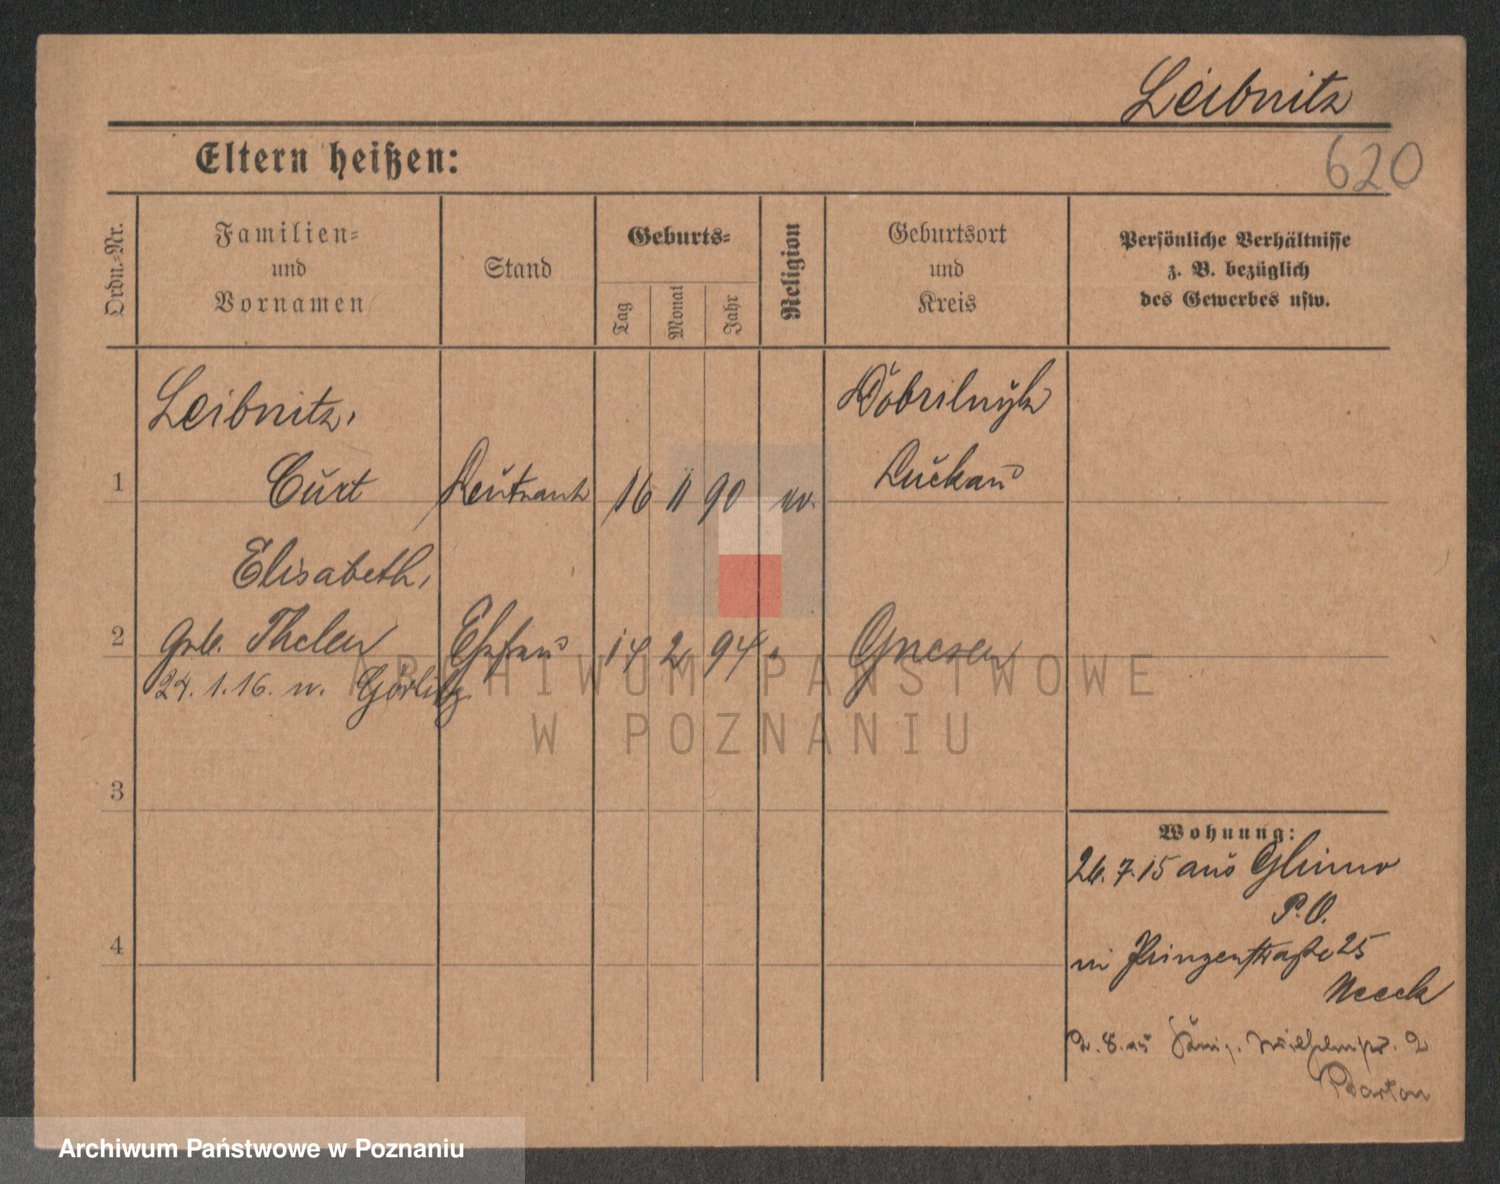 Leibnitz
620
Eltern heißen:
Ordn.-Nr.
Familien-
und
Vornamen
Stand
Geburts-
Tag
Monat
Jahr
Religion
Geburtsort
und
Kreis
Persönliche Verhältnisse
z. B. bezüglich
des Gewerbes usw.
1
Leibnitz,
Curt
Leutnant
16 11 90
ev.
Dobrilugk
Luckau
2
Elisabeth,
geb. Thelen
Ehefrau
14 2 94
"
Gnesen
24. 1. 16. n. Görlitz
3
4
Wohnung:
26. 7. 15 aus Glinno
P. O.
in Prinzenstraße 25
2. 8. 15 König. Wilhelmstr. 2
ARCHIWUM PAŃSTWOWE
W POZNANIU
Archiwum Państwowe w Poznaniu